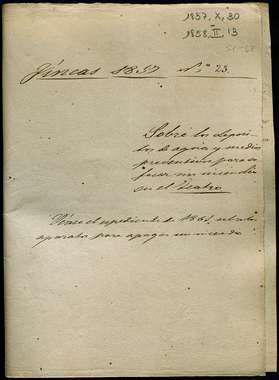 1857, X, 30
1858, II, 13
51-68
Fincas 1857 N.º 23.
Sobre los depósi-
tos de agua y medios
preventivos para so-
focar un incendio
en el Teatro
Véase el expediente de 1861, sobre
aparatos para apagar un incendio